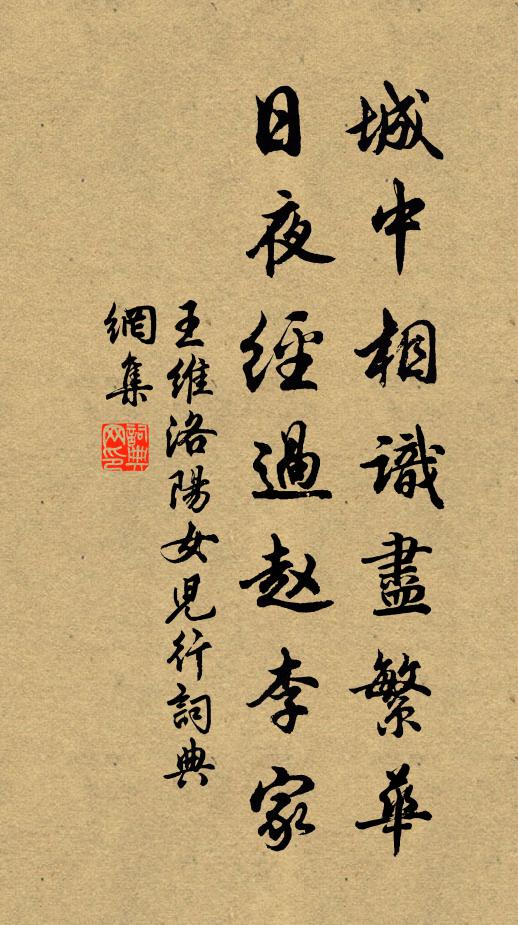 城中相識盡繁華
日夜經過赵李家
王維洛陽女児行詞典
網集
詞典
网印